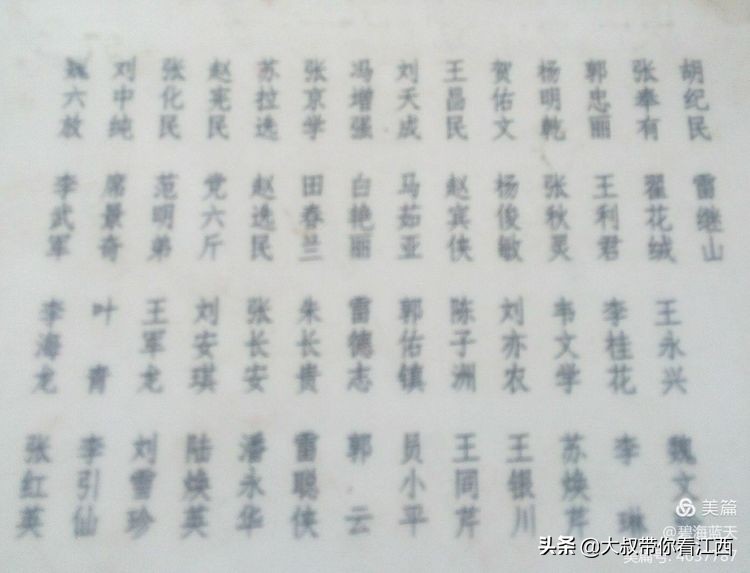 魏六放 刘中纯 张化民 赵宪民 苏拉选 张京学 冯增强 刘天成 王昌民 贺佑文 杨明乾 郭忠丽 张奉有 胡纪民
李武军 席景奇 范明弟 党六斤 赵选民 田春兰 白艳丽 马茹亚 赵宾侠 杨俊敏 张秋灵 王利君 翟花绒 雷继山
李海龙 叶青 王军龙 刘安琪 张长安 朱长贵 雷德志 郭佑镇 陈子洲 刘亦农 韦文学 李桂花 王永兴
张红英 李引仙 刘雪珍 陆焕英 潘永华 雷聪侠 郭云 员小平 王同芹 王银川 苏焕芹 李琳 魏文
美篇
@碧海蓝天
美篇号:4637787
头条 @大叔带你看江西